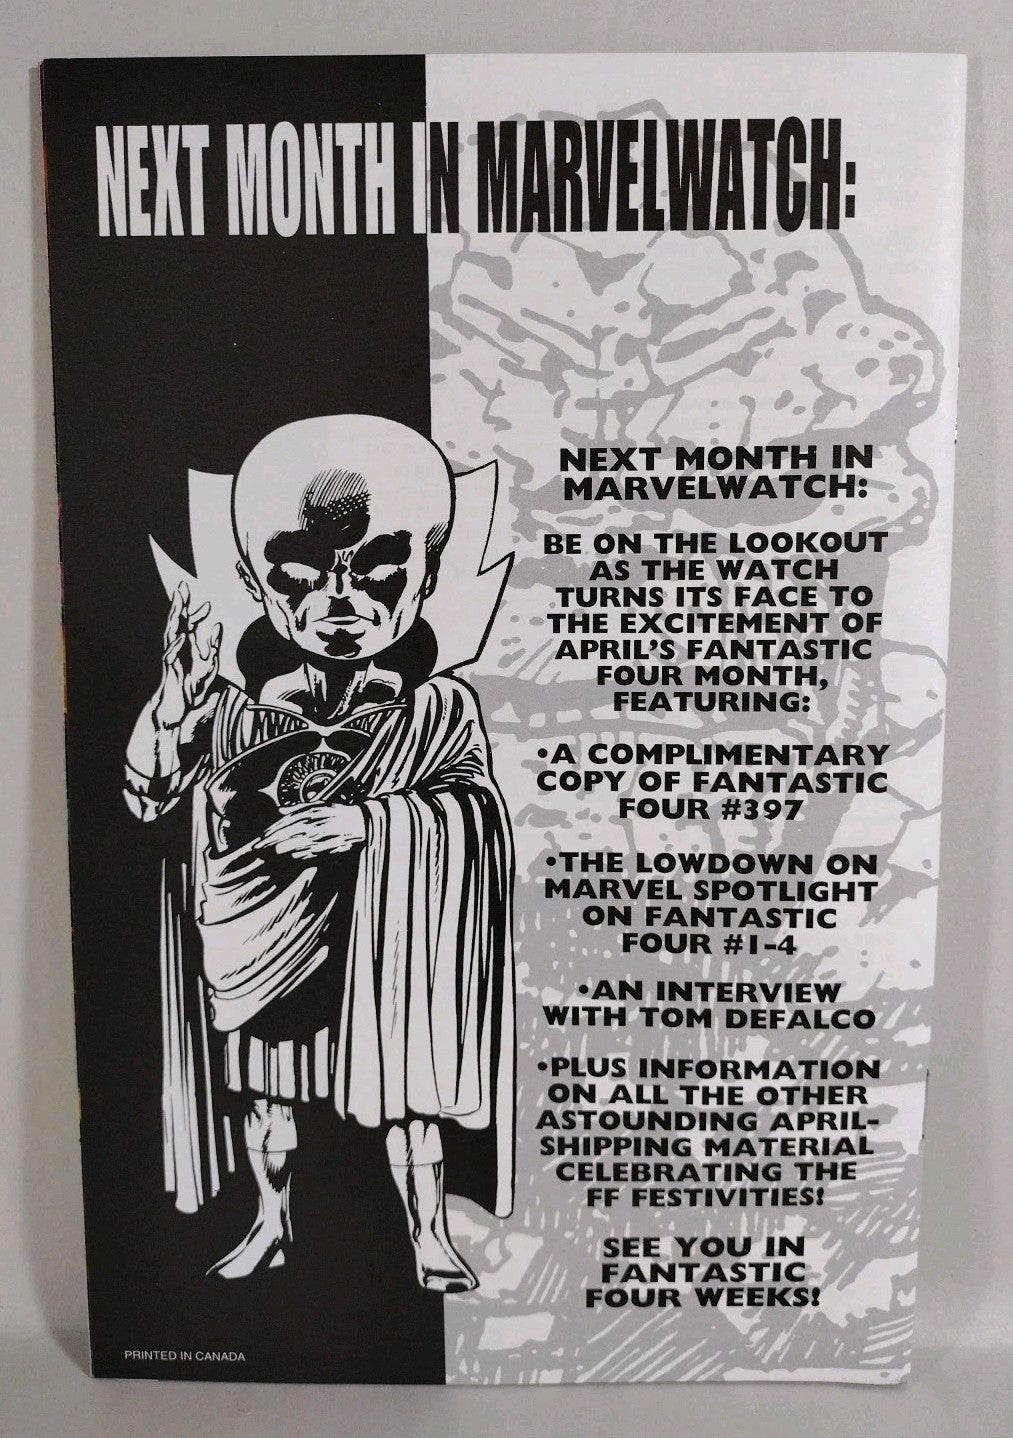 NEXT MONTH IN MARVELWATCH:
NEXT MONTH IN
MARVELWATCH:
BE ON THE LOOKOUT
AS THE WATCH
TURNS ITS FACE TO
THE EXCITEMENT OF
APRIL'S FANTASTIC
FOUR MONTH,
FEATURING:
•A COMPLIMENTARY
COPY OF FANTASTIC
FOUR #397
•THE LOWDOWN ON
MARVEL SPOTLIGHT
ON FANTASTIC
FOUR #1-4
•AN INTERVIEW
WITH TOM DEFALCO
•PLUS INFORMATION
ON ALL THE OTHER
ASTOUNDING APRIL-
SHIPPING MATERIAL
CELEBRATING THE
FF FESTIVITIES!
SEE YOU IN
FANTASTIC
FOUR WEEKS!
PRINTED IN CANADA